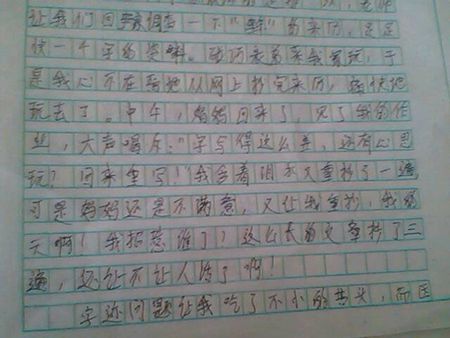 让我们回家调查一下"鲜"的来历，足足
快一千字的资料。 我贪玩，于
是我心不在焉地从网上抄完来历，赶快地
玩去了。中午，妈妈回来了，见了我的作
业，大声喝斥："字写得这么差，还有心思
玩？回来重写！"我含着泪水又重抄了一遍
可是妈妈还是不满意，又让我重抄，我的
天啊！我招惹谁了？这么长的文章抄了三
遍，还让不让人活了啊！
字迹问题让我吃了不小的苦头，而因